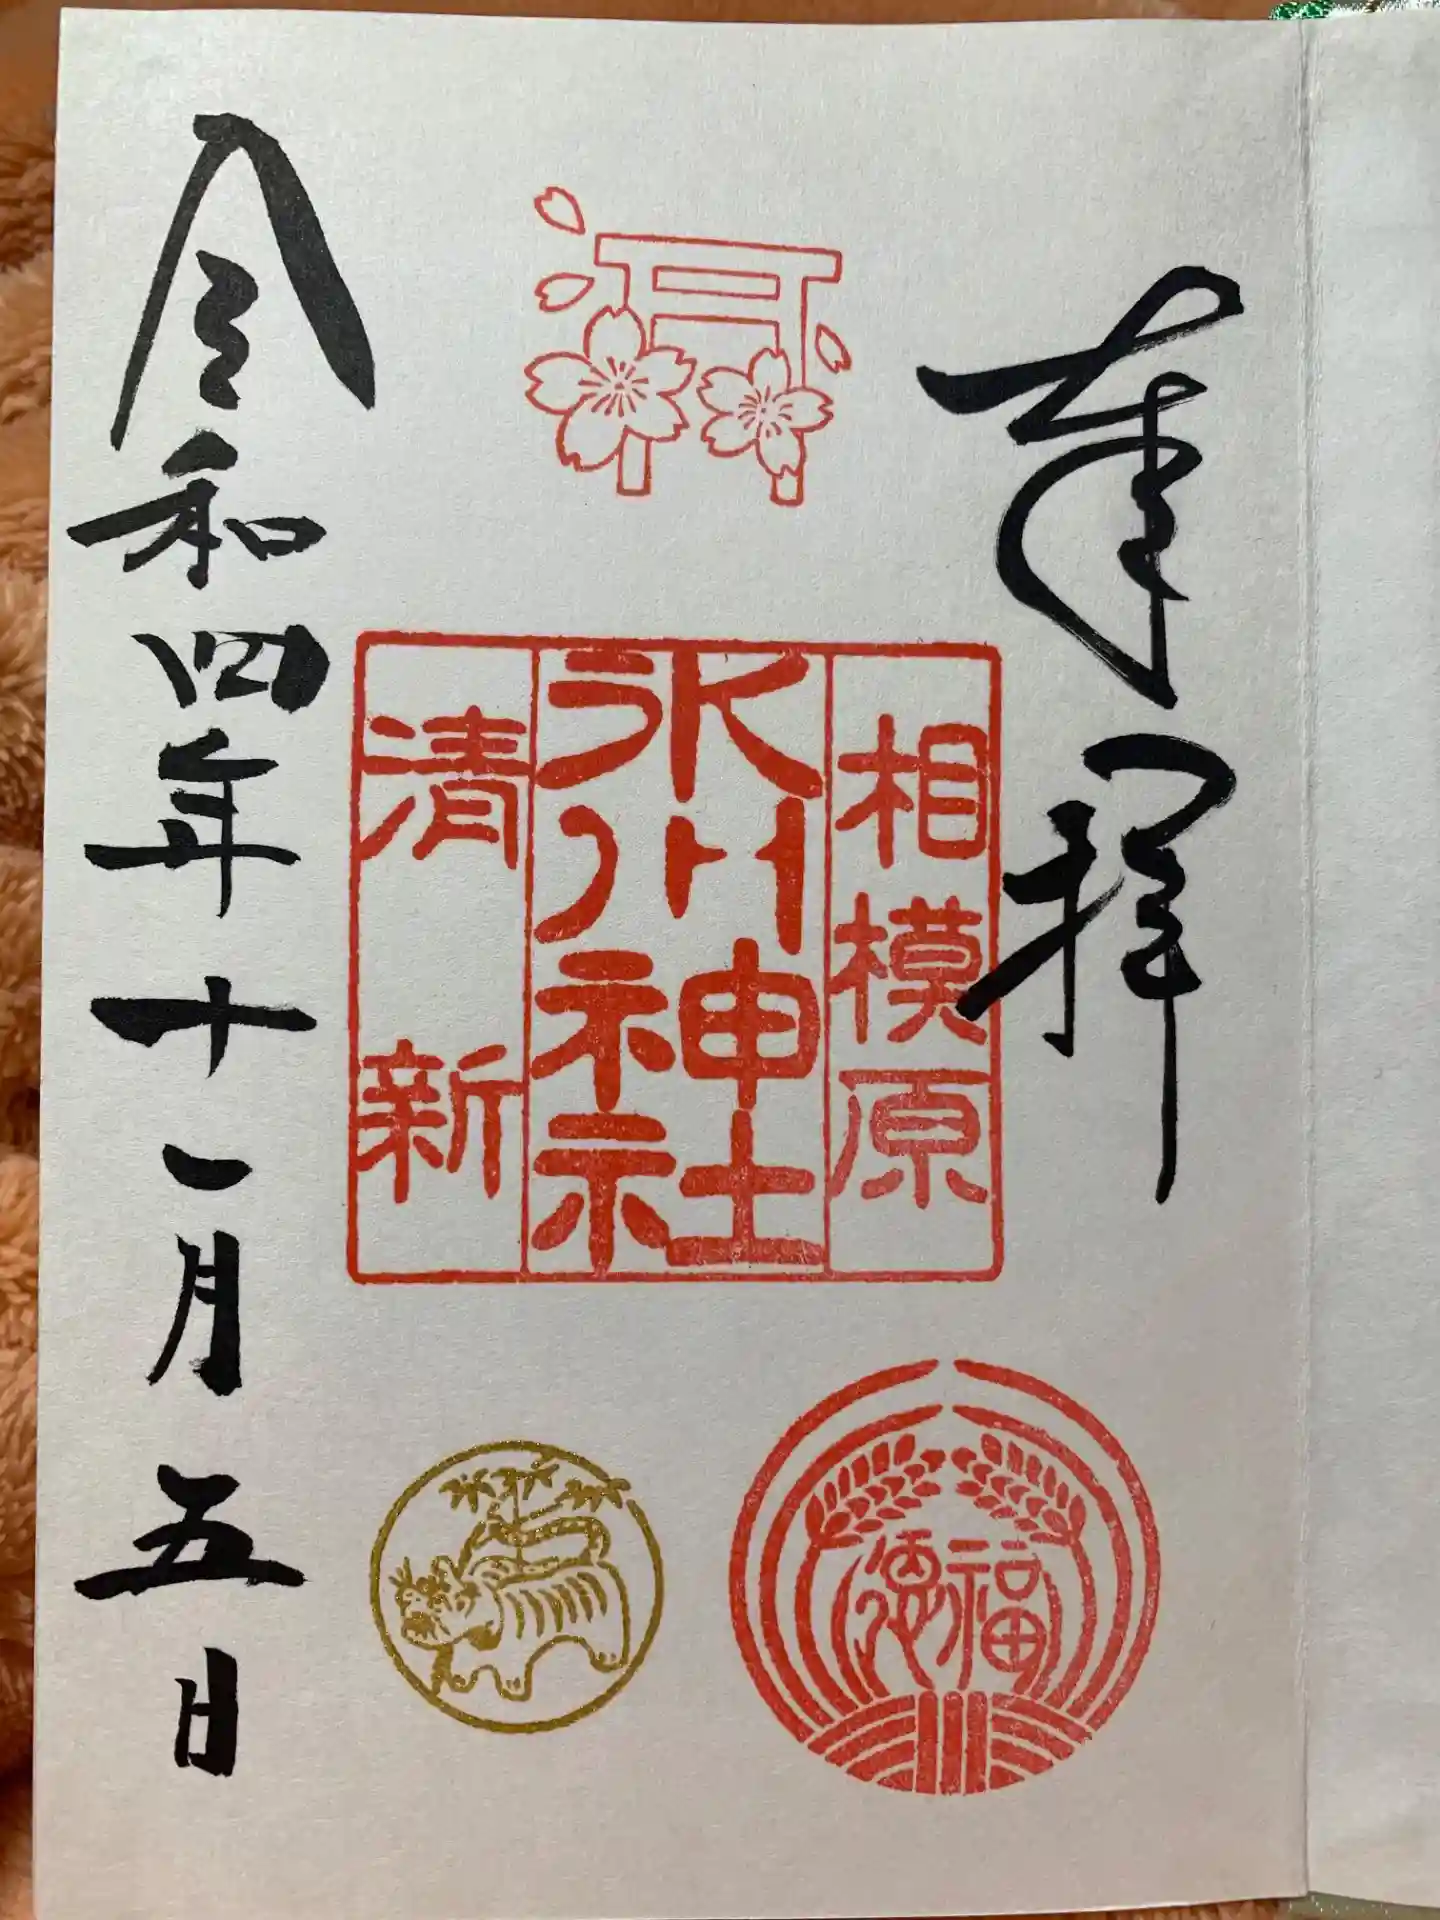 奉拝
相模原
氷川神社
清新
令和四年十一月五日
福徳